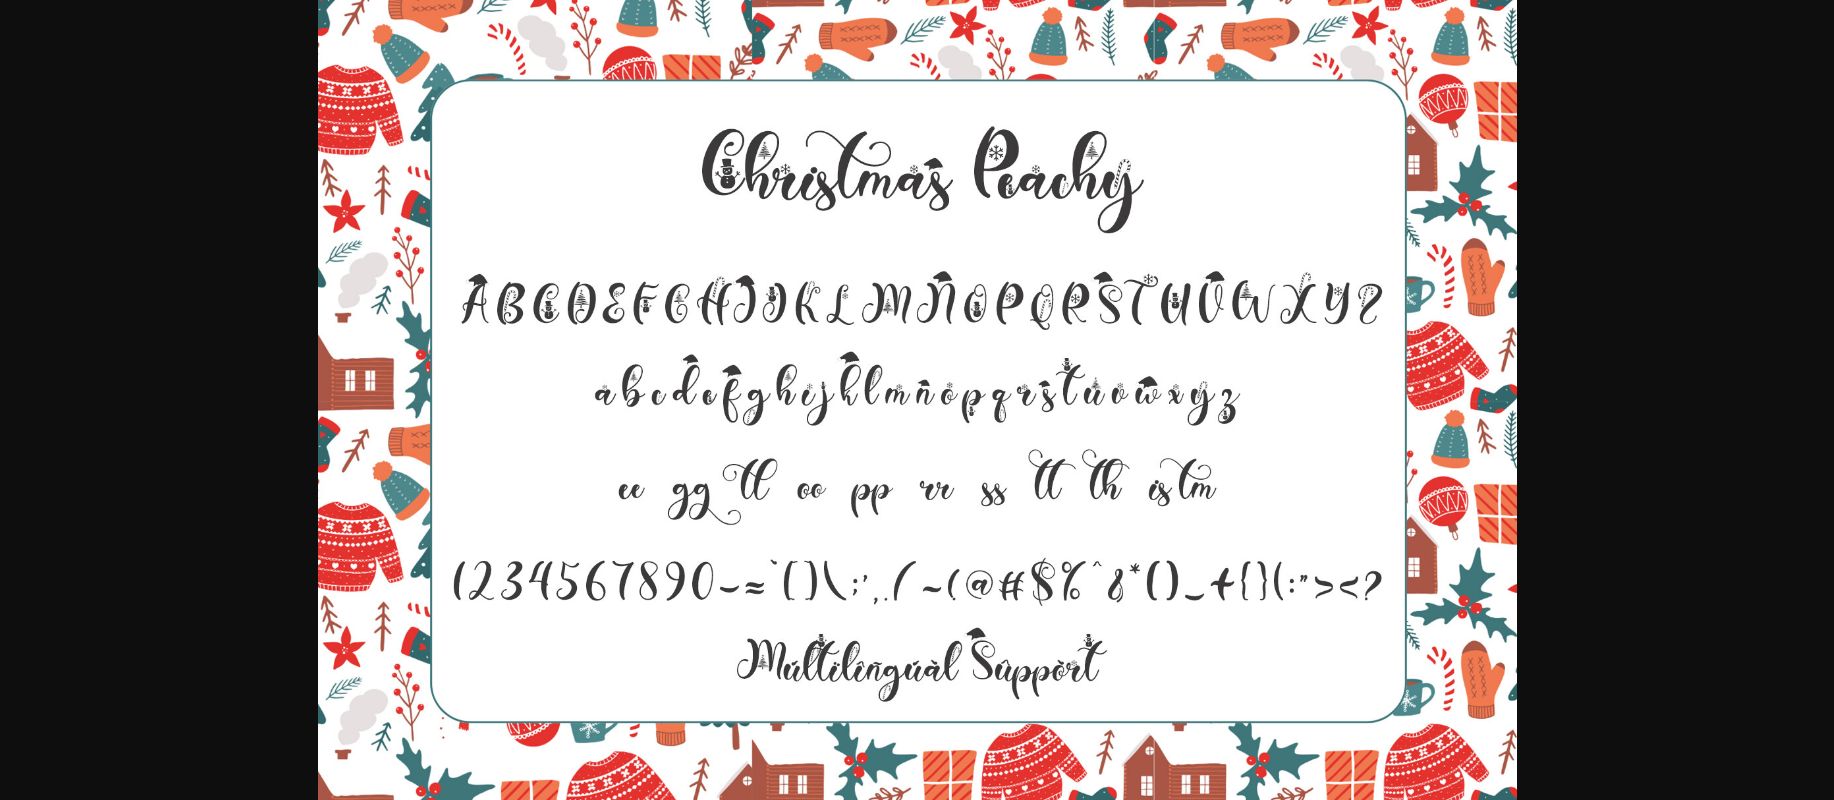 Christmas Peachy
A B C D E F G H I J K L M N O P Q R S T U V W X Y Z
a b c d e f g h i j k l m n o p q r s t u v w x y z
ee gg tl oo pp rr ss tt th is tm
(234567890-=`[]\;',./~!@#$%^&*()_+{}|:"><?
Multilingual Support